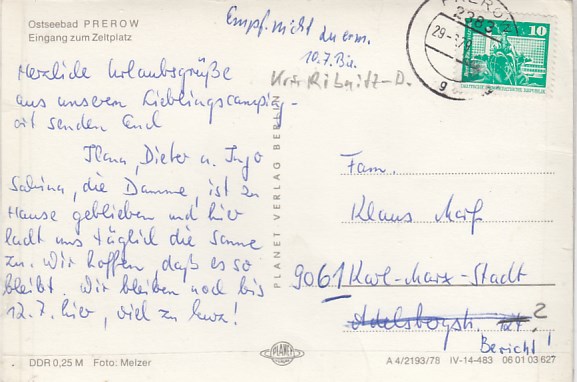 Ostseebad PREROW
Eingang zum Zeltplatz
Empf. nicht zu erm.
10.7. Bie.
Krs. Ribnitz-D.
PREROW
2383
29-
g
10
DEUTSCHE DEMOKRATISCHE REPUBLIK
Herzliche Urlaubsgrüße
aus unserem Lieblingscamping-
ort senden Euch
Ilona, Dieter u. Ingo
Sabina, die Damme, ist zu
Hause geblieben und hier
lacht uns täglich die Sonne
zu. Wir hoffen, daß es so
bleibt. Wir bleiben noch bis
12.7. hier, viel zu kurz!
PLANET VERLAG BERLIN
Fam.
Klaus
9061 Karl-Marx-Stadt
Adelsbergstr. ?
Bericht!
DDR 0,25 M Foto: Melzer
PLANET
A 4/2193/78 IV-14-483 06 01 03 627